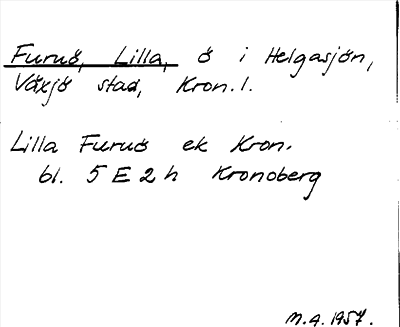 Furuö, Lilla, ö i Helgasjön,
Växjö stad, Kron. l.
Lilla Furuö ek Kron.
bl. 5 E 2 h Kronoberg
M.A. 1957.